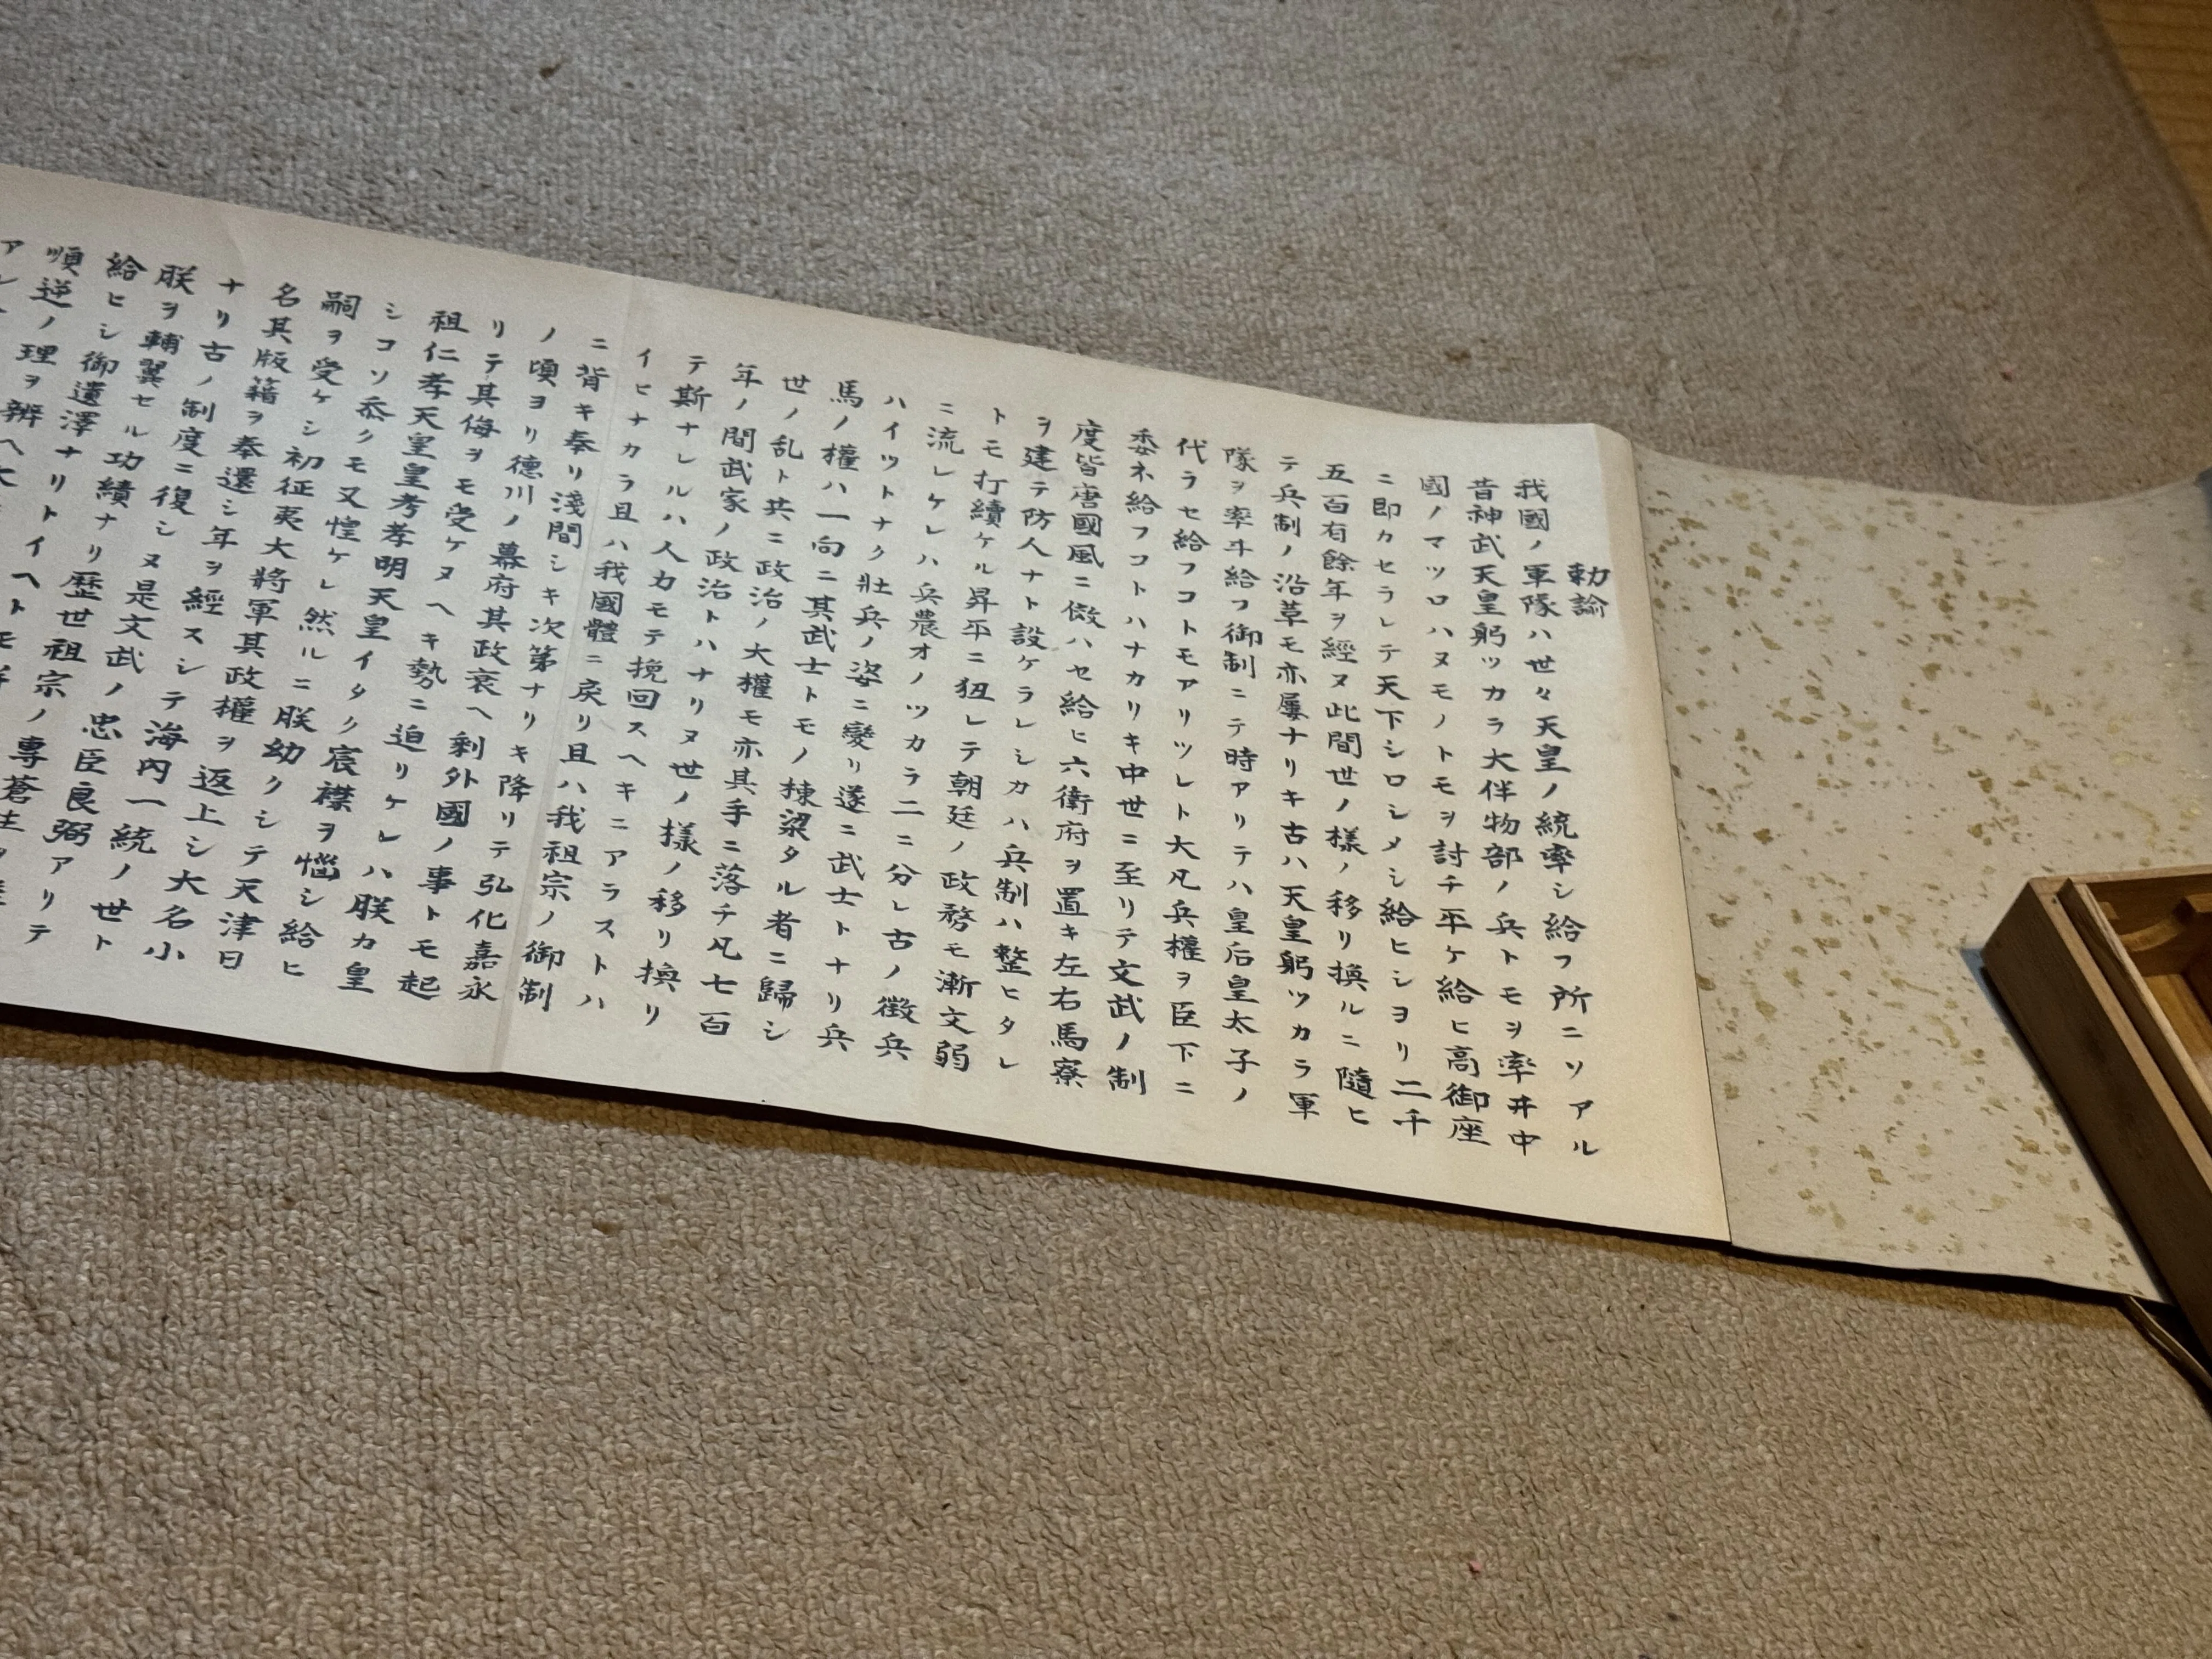 勅諭
我國ノ軍隊ハ世々天皇ノ統率シ給フ所ニソアル
昔神武天皇躬ツカラ大伴物部ノ兵トモヲ率井中
國ノマツロハヌモノトモヲ討チ平ケ給ヒ高御座
ニ即カセラレテ天下シロシメシ給ヒシヨリ二千
五百有餘年ヲ經ヌ此間世ノ樣ノ移リ換ルニ隨ヒ
テ兵制ノ沿革モ亦屢ナリキ古ハ天皇躬ツカラ軍
隊ヲ率ヰ給フ御制ニテ時アリテハ皇后皇太子ノ
代ラセ給フコトモアリツレト大凡兵權ヲ臣下ニ
委ネ給フコトハナカリキ中世ニ至リテ文武ノ制
度皆唐國風ニ傚ハセ給ヒ六衛府ヲ置キ左右馬寮
ヲ建テ防人ナト設ケラレシカハ兵制ハ整ヒタレ
トモ打續ケル昇平ニ狃レテ朝廷ノ政務モ漸文弱
ニ流レケレハ兵農オノツカラ二ニ分レ古ノ徴兵
ハイツトナク壯兵ノ姿ニ變リ遂ニ武士トナリ兵
馬ノ權ハ一向ニ其武士トモノ棟梁タル者ニ歸シ
世ノ乱ト共ニ政治ノ大權モ亦其手ニ落チ凡七百
年ノ間武家ノ政治トハナリヌ世ノ樣ノ移リ換リ
テ斯ナレルハ人力モテ挽回スヘキニアラストハ
イヒナカラ且ハ我國體ニ戻リ且ハ我祖宗ノ御制
ニ背キ奉リ淺間シキ次第ナリキ降リテ弘化嘉永
ノ頃ヨリ德川ノ幕府其政衰ヘ剰外國ノ事トモ起
リテ其侮ヲモ受ケヌヘキ勢ニ迫リケレハ朕カ皇
祖仁孝天皇皇考孝明天皇イタク宸襟ヲ惱シ給ヒ
シコソ忝クモ又惶ケレ然ルニ朕幼クシテ天津日
嗣ヲ受ケシ初征夷大將軍其政權ヲ返上シ大名小
名其版籍ヲ奉還シ年ヲ經スシテ海内一統ノ世ト
ナリ古ノ制度ニ復シヌ是文武ノ忠臣良弼アリテ
朕ヲ輔翼セル功績ナリ歷世祖宗ノ專蒼生
給ヒシ御遺澤ナリトイヘトモ
順逆ノ理ヲ辨ヘ大